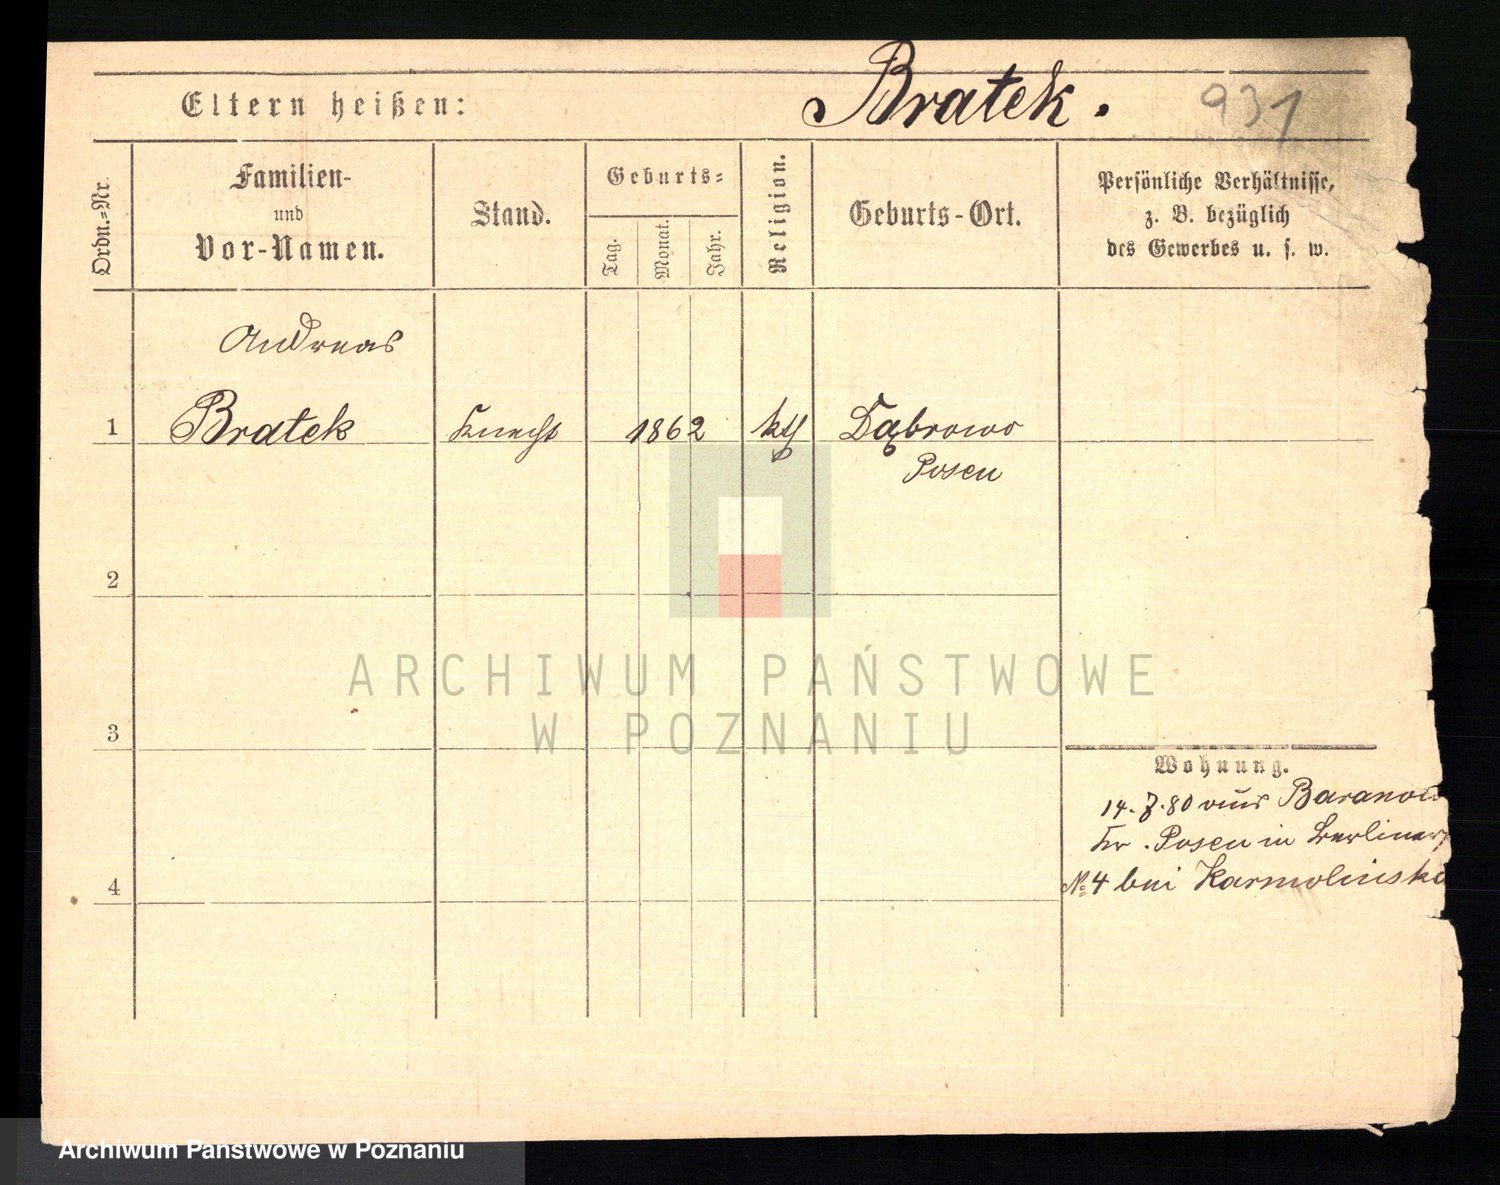 Eltern heißen:
Bratek.
931
Ordn.=Nr.
Familien-
und
Vor-Namen.
Stand.
Geburts=
Tag.
Monat.
Jahr.
Religion.
Geburts-Ort.
Persönliche Verhältnisse,
z. B. bezüglich
des Gewerbes u. s. w.
Andreas
1 Bratek Knecht 1862 kth Dąbrowo
Posen
2
3
4
Wohnung.
14. 7. 80 aus
Kr. Posen in
№ 4 bei
ARCHIWUM PAŃSTWOWE
W POZNANIU
Archiwum Państwowe w Poznaniu